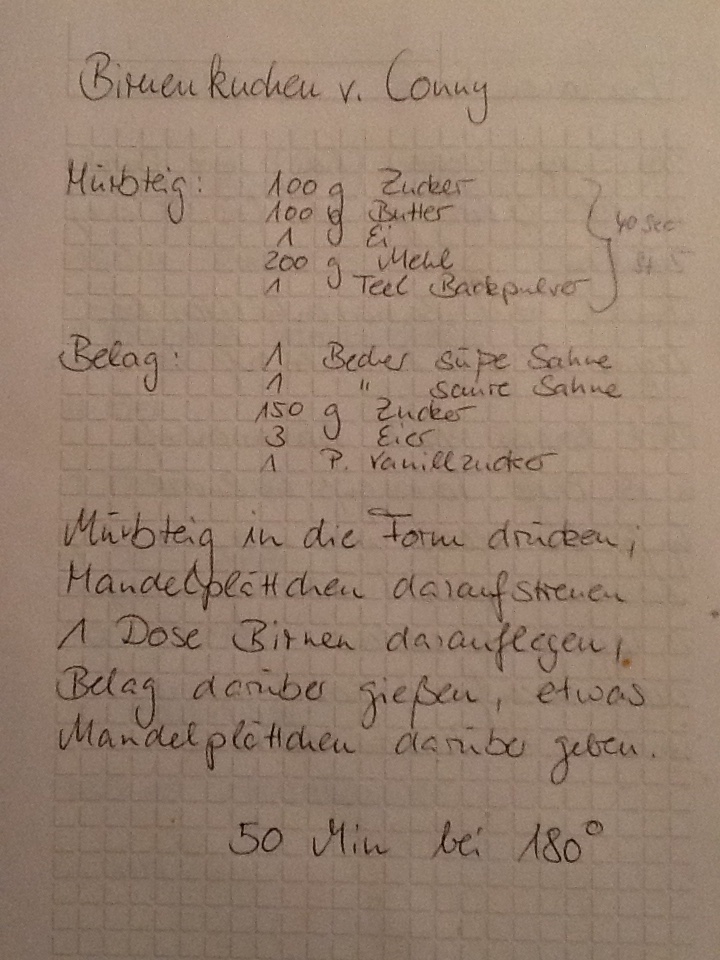 Birnenkuchen v. Conny
Mürbteig: 100 g Zucker
100 g Butter
1 g Ei
200 g Mehl
1 Teel Backpulver
40 sec
St 5
Belag: 1 Becher süße Sahne
1 " saure Sahne
150 g Zucker
3 Eier
1 P. Vanillzucker
Mürbteig in die Form drücken;
Mandelplättchen daraufstreuen
1 Dose Birnen darauflegen,
Belag darüber gießen, etwas
Mandelplättchen darüber geben.
50 Min bei 180°